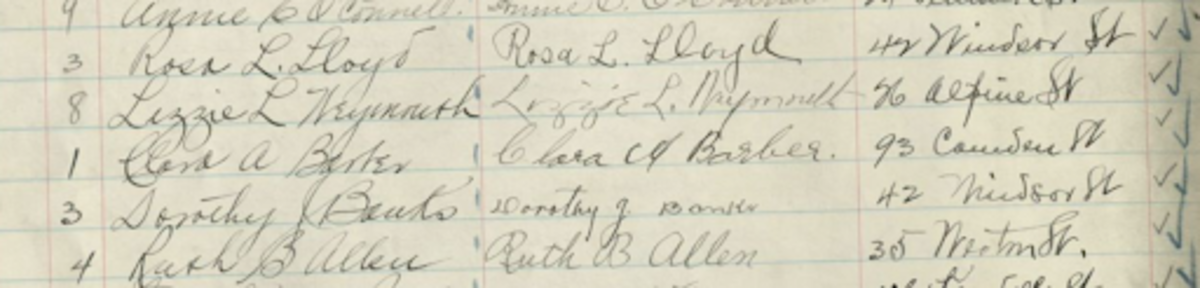 9 Annie C O'Connell.
3 Rosa L. Lloyd Rosa L. Lloyd 42 Windsor St
8 Lizzie L Weymouth Lizzie L. Weymouth 76 Alpine St
1 Clara A Barber Clara A Barber. 93 Camden St
3 Dorothy J Banks Dorothy J. Banks 42 Windsor St
4 Ruth B Allen Ruth B Allen 35 Weston St.